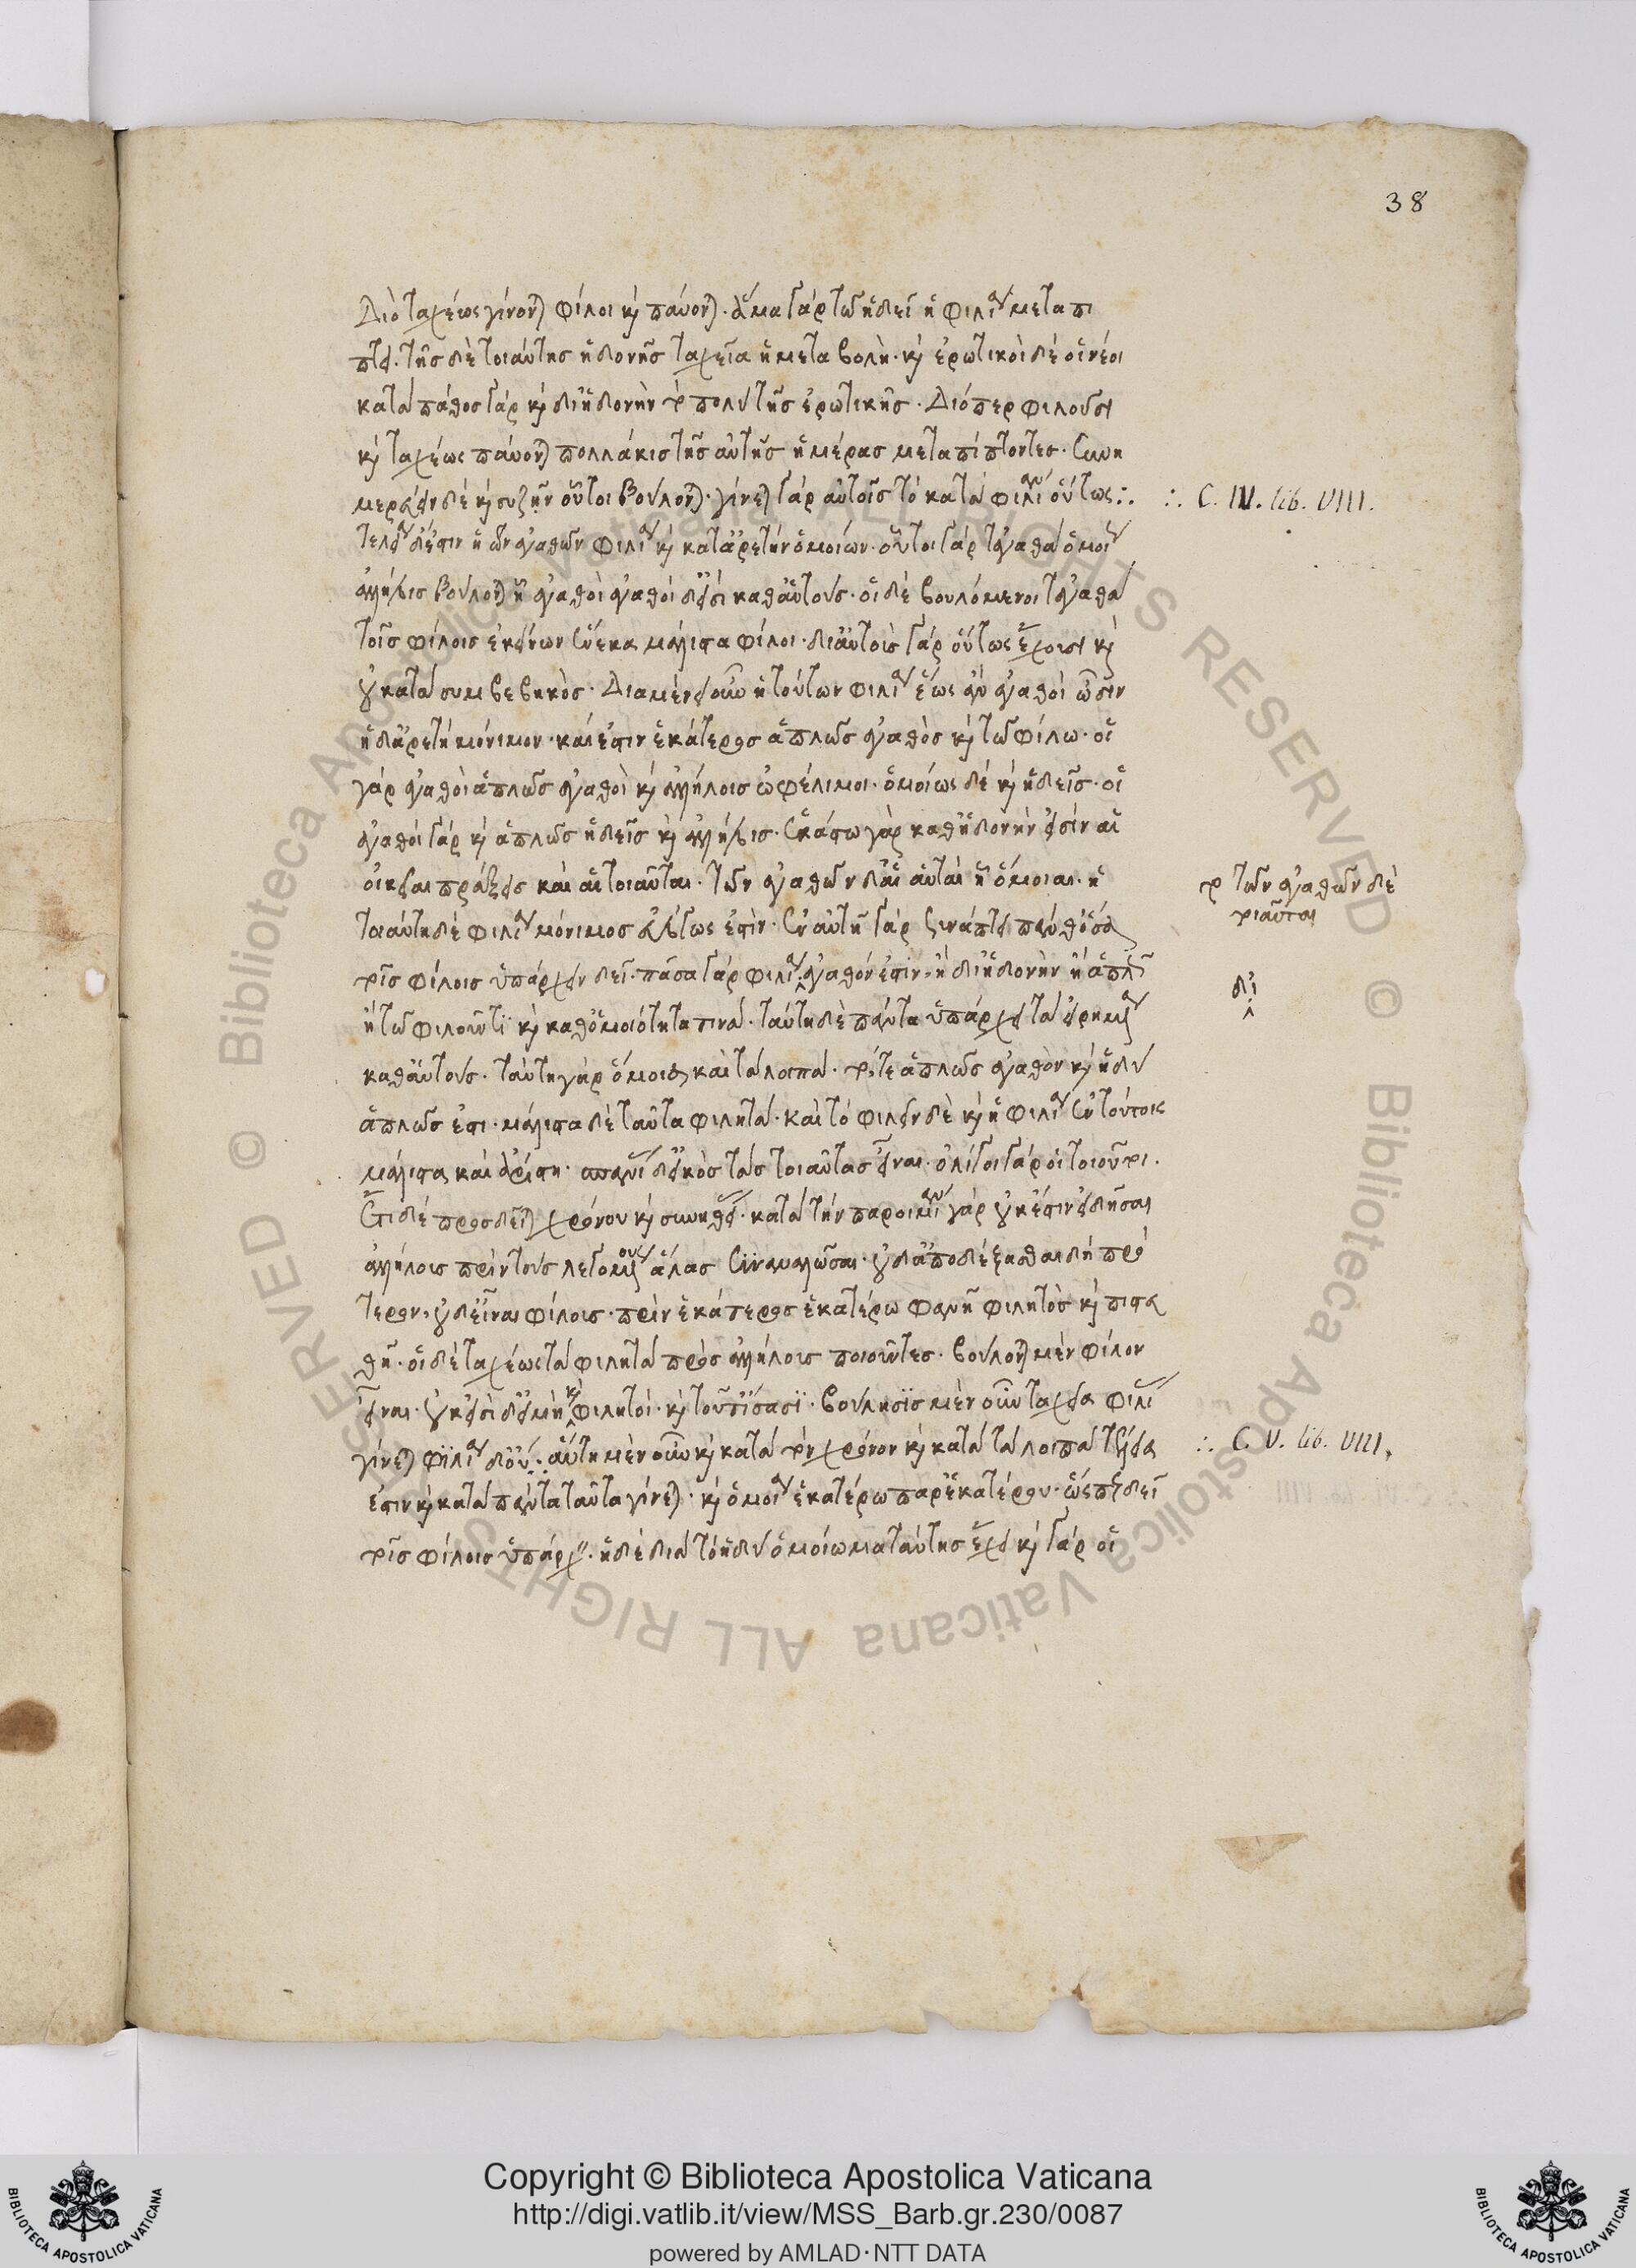 38
Διὸ ταχέως γίνονται φίλοι καὶ παύονται· ἅμα γὰρ τῶ ἡδεῖ ἡ φιλία μεταπί
πτει· τῆς δὲ τοιαύτης ἡδονῆς ταχεῖα ἡ μεταβολὴ· καὶ ἐρωτικοὶ δὲ οἱ νέοι
κατὰ πάθος γὰρ καὶ δι ἡδονὴν τὸ πολὺ τῆς ἐρωτικῆς· Διόπερ φιλοῦσι
καὶ ταχέως παύονται πολλάκις τῆς αὐτῆς ἡμέρας μεταπίπτοντες· Συνη
μερεύειν δὲ καὶ συζῆν οὗτοι βούλονται· γίνεται γὰρ αὐτοῖς τὸ κατὰ φιλίαν οὕτως ∴
∴ C. IV. lib. VIII.
τελεία δέ ἐστιν ἡ τῶν ἀγαθῶν φιλία καὶ κατ ἀρετὴν ὁμοίων· οὗτοι γὰρ τἀγαθὰ ὁμοίως
ἀλλήλοις βούλονται ᾗ ἀγαθοὶ ἀγαθοὶ δ εἰσὶ καθ αὑτούς· οἱ δὲ βουλόμενοι τἀγαθὰ
τοῖς φίλοις ἐκείνων ἕνεκα μάλιστα φίλοι· δι αὑτοὺς γὰρ οὕτως ἔχουσι καὶ
οὐ κατὰ συμβεβηκὸς· Διαμένει οὖν ἡ τούτων φιλία ἕως ἂν ἀγαθοὶ ὦσιν
ἡ δ ἀρετὴ μόνιμον· καὶ ἔστιν ἑκάτερος ἁπλῶς ἀγαθὸς καὶ τῶ φίλω· οἱ
γὰρ ἀγαθοὶ ἁπλῶς ἀγαθοὶ καὶ ἀλλήλοις ὠφέλιμοι· ὁμοίως δὲ καὶ ἡδεῖς· οἱ
ἀγαθοὶ γὰρ καὶ ἁπλῶς ἡδεῖς καὶ ἀλλήλοις· ἑκάστω γὰρ καθ ἡδονὴν εἰσὶν αἱ
οἰκεῖαι πράξεις καὶ αἱ τοιαῦται· τῶν ἀγαθῶν δ αἱ αὐταὶ ἢ ὅμοιαι· ἡ
τῶν ἀγαθῶν δὲ
τοιαῦται
τοιαύτη δὲ φιλία μόνιμος εὐλόγως ἐστὶν· ἐν αὐτῆ γὰρ συνάπτει πάνθ ὅσα
τοῖς φίλοις ὑπάρχειν δεῖ· πᾶσα γὰρ φιλία ἀγαθόν ἐστιν· ἢ δι ἡδονὴν ἢ ἁπλῶς
δι
ἢ τῶ φιλοῦντι καὶ καθ ὁμοιότητα τινά· ταύτη δὲ πάντα ὑπάρχει τὰ εἰρημένα
καθ αὑτούς· ταύτη γὰρ ὅμοια καὶ τὰ λοιπά· τό,τε ἁπλῶς ἀγαθὸν καὶ ἡδὺ
ἁπλῶς ἐστι· μάλιστα δὲ ταῦτα φιλητά· καὶ τὸ φιλεῖν δὲ καὶ ἡ φιλία ἐν τούτοις
μάλιστα καὶ ἀρίστη· σπανίας δ εἰκὸς τὰς τοιαύτας εἶναι· ὀλίγοι γάρ οἱ τοιοῦτοι·
ἔτι δὲ προσδεῖται χρόνου καὶ συνηθείας· κατὰ τὴν παροιμίαν γὰρ οὐκ ἔστιν εἰδῆσαι
ἀλλήλοις πρὶν τοὺς λεγομένους ἅλας συναναλῶσαι· οὐδ ἀποδέξασθαι δὴ πρό
τερον· οὐδ εἶναι φίλοις· πρὶν ἑκάτερος ἑκατέρω φανῆ φιλητὸς καὶ πιστευ
θῆ· οἱ δὲ ταχέως τὰ φιλητὰ πρὸς ἀλλήλοις ποιοῦντες· βούλονται μὲν φίλοι
εἶναι· οὐκ εἰσὶ δ εἰ μὴ καὶ φιλητοί· καὶ τοῦτ ἴσασι· βούλησις μὲν οὖν ταχεῖα φιλίας
γίνεται φιλία δ οὔ ∴ αὕτη μὲν οὖν καὶ κατὰ τὸν χρόνον καὶ κατὰ τὰ λοιπὰ τελεία
∴ C. V. lib. VIII.
ἐστιν καὶ κατὰ πάντα ταῦτα γίνεται· καὶ ὅμοια ἑκατέρω παρ ἑκατέρου· ὥσπερ δεῖ
τοῖς φίλοις ὑπάρχειν· ἡ δὲ διὰ τὸ ἡδὺ ὁμοίωμα ταύτης ἔχει καὶ γὰρ οἱ
Copyright © Biblioteca Apostolica Vaticana
http://digi.vatlib.it/view/MSS_Barb.gr.230/0087
powered by AMLAD · NTT DATA